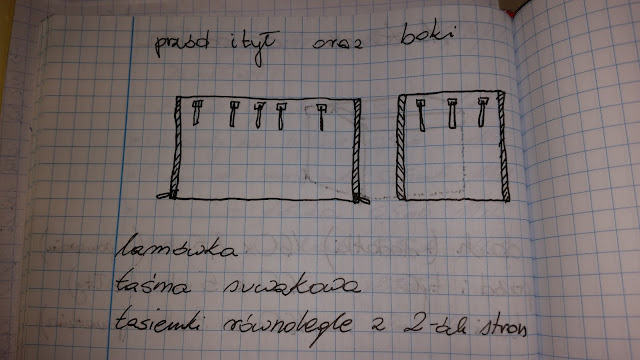 przód i tył oraz boki
lamówka
taśma suwakowa
tasiemki równoległe z 2-óch stron